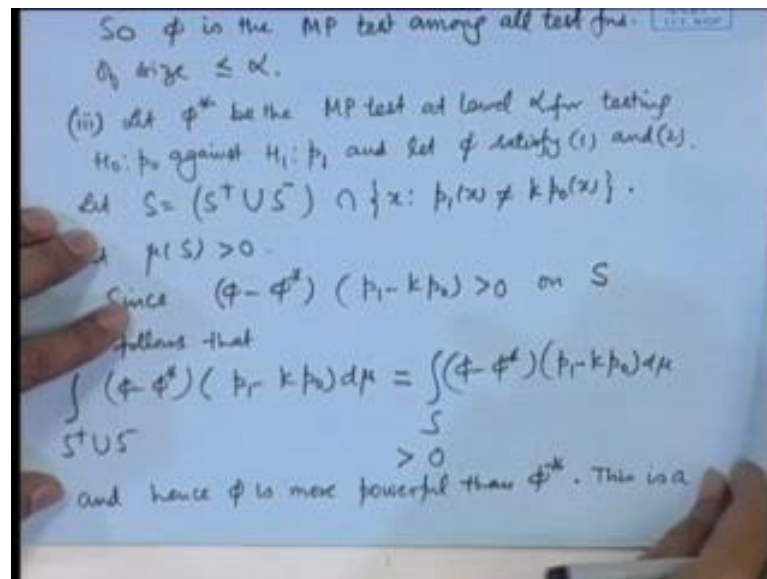 So φ is the MP test among all test fns.
of size ≤ α.
(iii) Let φ* be the MP test at level α for testing
H₀: p₀ against H₁: p₁ and let φ satisfy (1) and (2).
Let S = (S⁺ ∪ S⁻) ∩ {x: p₁(x) ≠ k p₀(x)}.
μ(S) > 0.
Since (φ - φ*) (p₁ - k p₀) > 0 on S
follows that
∫ (φ - φ*) (p₁ - k p₀) dμ = ∫ (φ - φ*) (p₁ - k p₀) dμ
S⁺ ∪ S⁻ S
> 0
and hence φ is more powerful than φ*. This is a